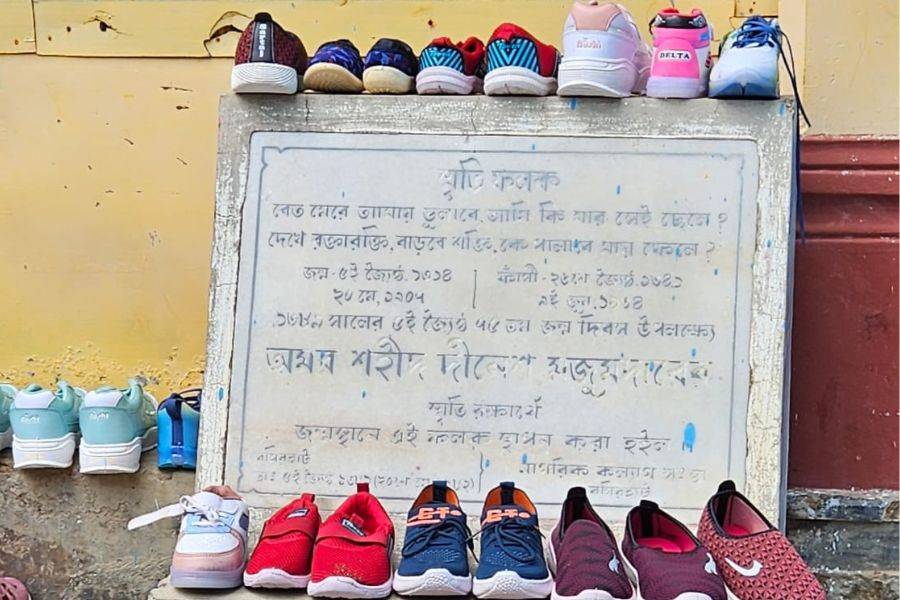 DELTA
স্মৃতি ফলক
বেত মেরে আমায় ভুলাবে, আমি কি মার সেই ছেলে?
দেখে রক্তারক্তি, বাড়বে শক্তি, কে পালাবে মায় ফেলে?
জন্ম - ৫ই জ্যৈষ্ঠ, ১৩১৪
ফাঁসী - ২৬শে জ্যৈষ্ঠ, ১৩৪১
মে, ১৯০৭
৯ই জুন,
সালের ৫ই জ্যৈষ্ঠ ৭৫ তম জন্ম দিবস উপলক্ষ্যে
অমর শহীদ দীনেশ মজুমদারের
স্মৃতি রক্ষার্থে
জন্মস্থানে এই ফলক স্থাপন করা হইল।
বসিরহাট
৫ই জ্যৈষ্ঠ
নাগরিক কল্যাণ সংস্থা
বসিরহাট